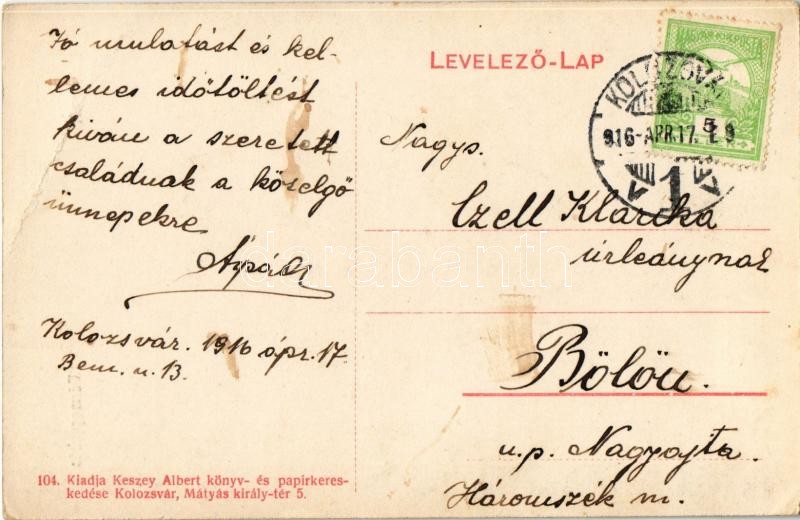 Jó mulatást és kel-
lemes időtöltést
kiván a szeretett
családnak a közelgő
ünnepekre
Árpád
Kolozsvár. 1916 ápr. 17.
Bem. u. 13.
104. Kiadja Keszey Albert könyv- és papirkeres-
kedése Kolozsvár, Mátyás király-tér 5.
LEVELEZŐ-LAP
MAGYAR KIR. POSTA
5
KOLOZSVÁR
916-APR.17.
1
Nagys.
Czell Klárika
úrleánynak
Bölön.
u. p. Nagyajta.
Háromszék m.
darabanth